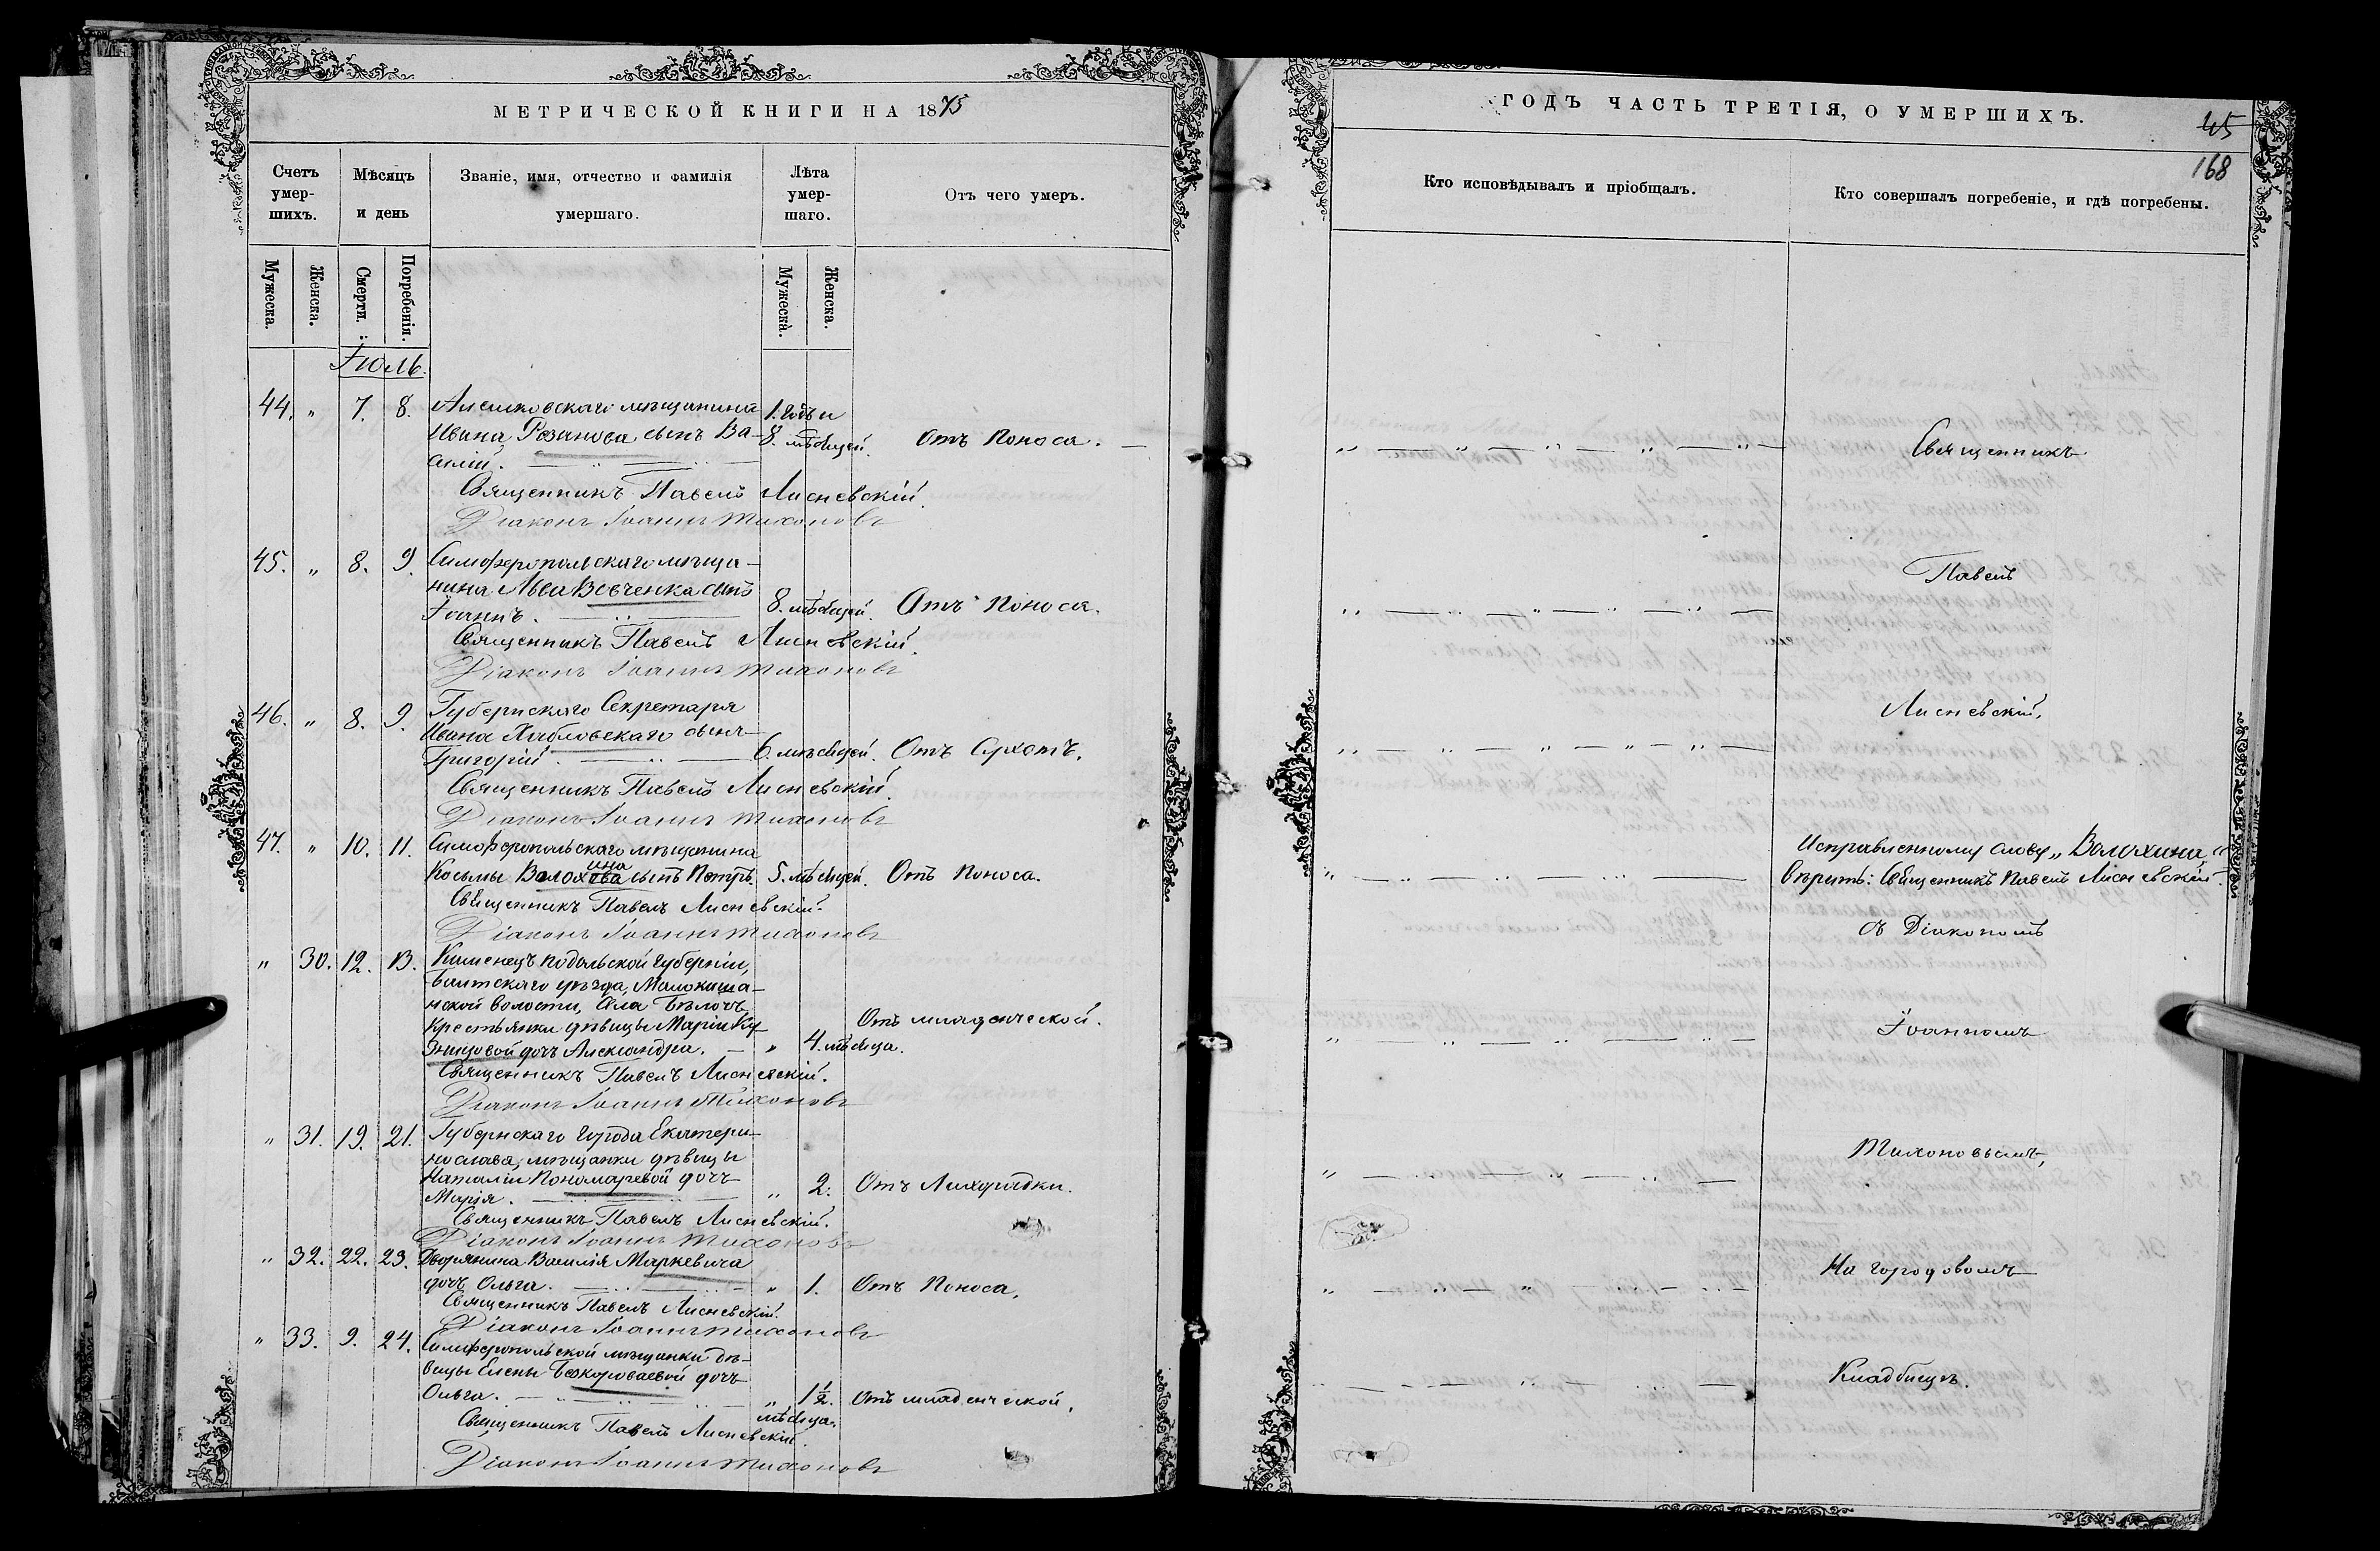 МЕТРИЧЕСКОЙ КНИГИ НА 1875
Счетъ умер-шихъ.
Мѣсяцъ и день
Званіе, имя, отчество и фамилія умершаго.
Лѣта умер-шаго.
Отъ чего умеръ.
Мужеска.
Женска.
Смерти.
Погребенія.
Мужеска.
Женска.
Іюль.
44. " 7. 8. Алешковскаго мѣщанина 1. годъ и
Ивана Розанова сынъ Ва- 8. мѣсяцей. Отъ поноса.
силій.
Священникъ Павелъ Лисневскій.
Діаконъ Іоаннъ Тихоновъ
45. " 8. 9. Симферопольскаго мѣща-
нина Льва Вовченка сынъ
Іоаннъ. 8. мѣсяцей. Отъ поноса.
Священникъ Павелъ Лисневскій.
Діаконъ Іоаннъ Тихоновъ
46. " 8. 9. Губернскаго Секретаря
Ивана Хибловскаго сынъ
Григорій. 6. мѣсяцей. Отъ Сухотъ.
Священникъ Павелъ Лисневскій.
Діаконъ Іоаннъ Тихоновъ
47. " 10. 11. Симферопольскаго мѣщанина
ина
Косьмы Волохова сынъ Петръ. 5. мѣсяцей. Отъ поноса.
Священникъ Павелъ Лисневскій.
Діаконъ Іоаннъ Тихоновъ
" 30. 12. 13. Каменецъ Подольской губерніи,
Балтскаго уѣзда, Молокиша-
нской волости, села Бѣлочъ
Крестьянки дѣвицы Маріи Ку- Отъ младенческой.
зницовой дочь Александра. " 4. мѣсяца.
Священникъ Павелъ Лисневскій.
Діаконъ Іоаннъ Тихоновъ
" 31. 19. 21. Губернскаго города Екатери-
нослава, мѣщанки дѣвицы
Наталіи Пономаревой дочь
Марія. " 2. Отъ Лихорадки.
Священникъ Павелъ Лисневскій.
Діаконъ Іоаннъ Тихоновъ
" 32. 22. 23. Дворянина Василія Маркевича
дочь Ольга. " 1. Отъ поноса.
Священникъ Павелъ Лисневскій.
Діаконъ Іоаннъ Тихоновъ
" 33. 9. 24. Симферопольской мѣщанки дѣ-
вицы Елены Безкороваевой дочь
Ольга. " 1½. Отъ младенческой.
мѣсяца.
Священникъ Павелъ Лисневскій.
Діаконъ Іоаннъ Тихоновъ
ГОДЪ ЧАСТЬ ТРЕТІЯ, О УМЕРШИХЪ.
45
168
Кто исповѣдывалъ и пріобщалъ.
Кто совершалъ погребеніе, и гдѣ погребены.
Священникъ
Павелъ
Лисневскій,
Исправленному слову „Волохина"
вѣрить: Священникъ Павелъ Лисневскій.
съ Діакономъ
Іоанномъ
Тихоновымъ,
На городовомъ
Кладбищѣ.